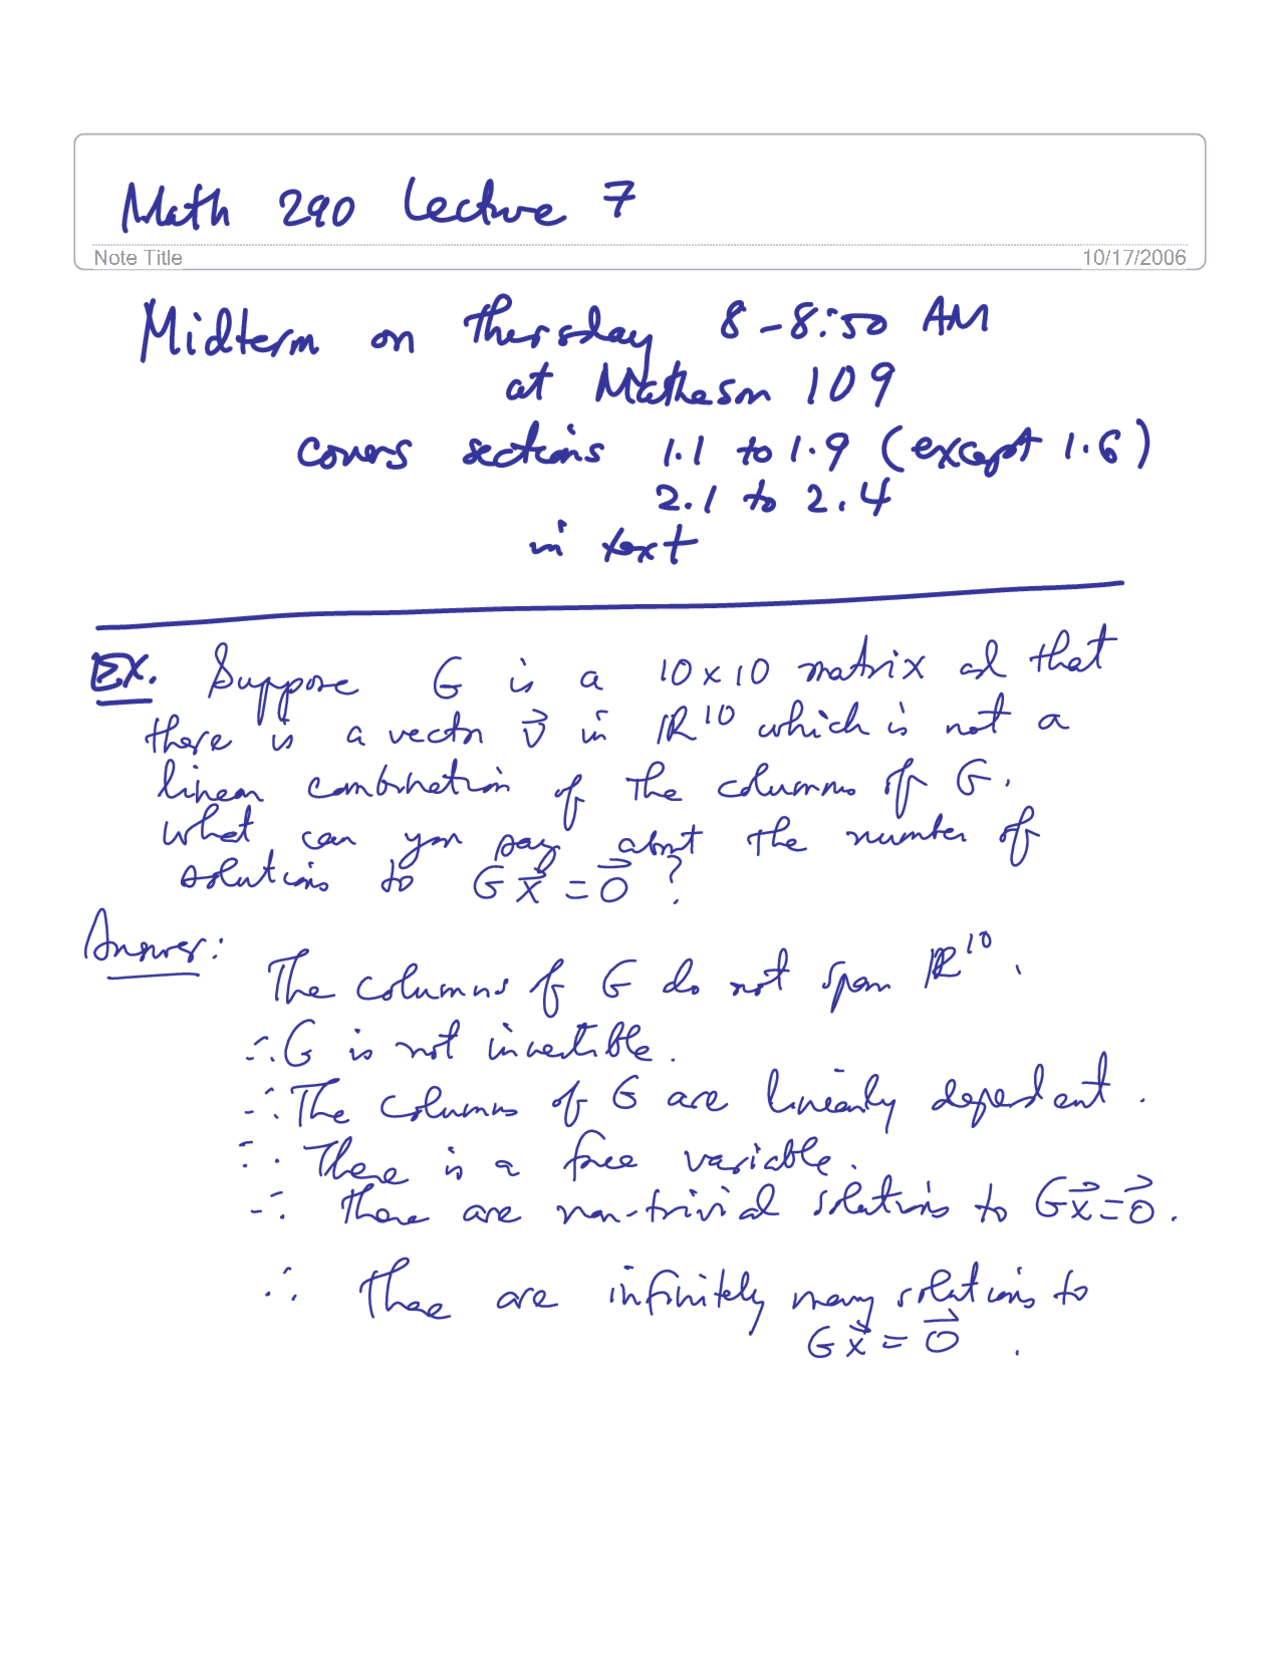 Math 290 Lecture 7
Note Title
10/17/2006
Midterm on Thursday 8-8:50 AM
at Matheson 109
covers sections 1.1 to 1.9 (except 1.6)
2.1 to 2.4
in text
Ex. Suppose G is a 10x10 matrix and that
there is a vector v⃗ in ℝ¹⁰ which is not a
linear combination of the columns of G.
What can you say about the number of
solutions to Gx⃗ = 0⃗ ?
Answer:
The columns of G do not span ℝ¹⁰.
∴ G is not invertible.
∴ The columns of G are linearly dependent.
∴ There is a free variable.
∴ there are non-trivial solutions to Gx⃗=0⃗.
∴ there are infinitely many solutions to
Gx⃗ = 0⃗ .